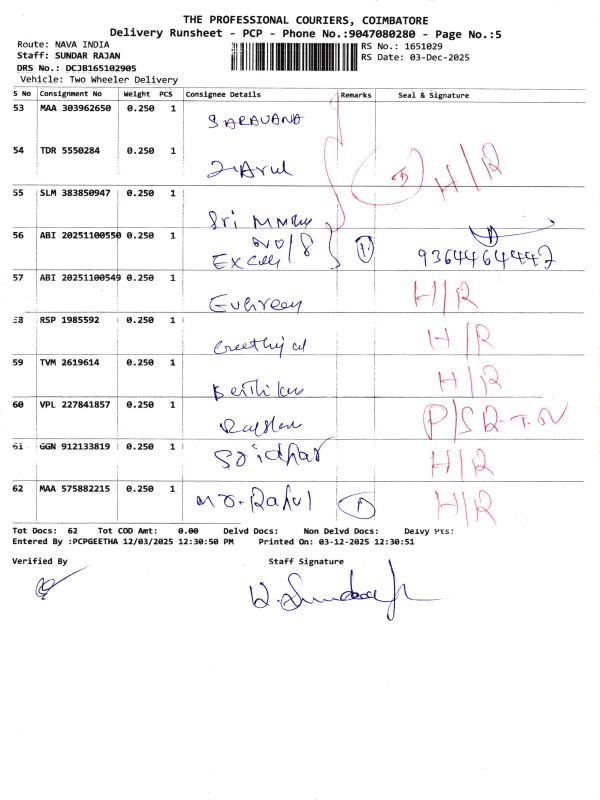 THE PROFESSIONAL COURIERS, COIMBATORE
Delivery Runsheet - PCP - Phone No.:9047080280 - Page No.:5
Route: NAVA INDIA
Staff: SUNDAR RAJAN
DRS No.: DCJB165102905
Vehicle: Two Wheeler Delivery
RS No.: 1651029
RS Date: 03-Dec-2025
S No Consignment No Weight PCS Consignee Details Remarks Seal & Signature
53 MAA 303962650 0.250 1
SARAVANA
54 TDR 5550284 0.250 1
Arul H/R
55 SLM 383850947 0.250 1
Sri
56 ABI 20251100550 0.250 1
9364464447
57 ABI 20251100549 0.250 1
H/R
58 RSP 1985592 0.250 1
H/R
59 TVM 2619614 0.250 1
H/R
60 VPL 227841857 0.250 1
61 GGN 912133819 0.250 1
Sridhar H/R
62 MAA 575882215 0.250 1
Mr. Rahul H/R
Tot Docs: 62 Tot COD Amt: 0.00 Delvd Docs: Non Delvd Docs: Delvy Pts:
Entered By :PCPGEETHA 12/03/2025 12:30:50 PM Printed On: 03-12-2025 12:30:51
Verified By Staff Signature